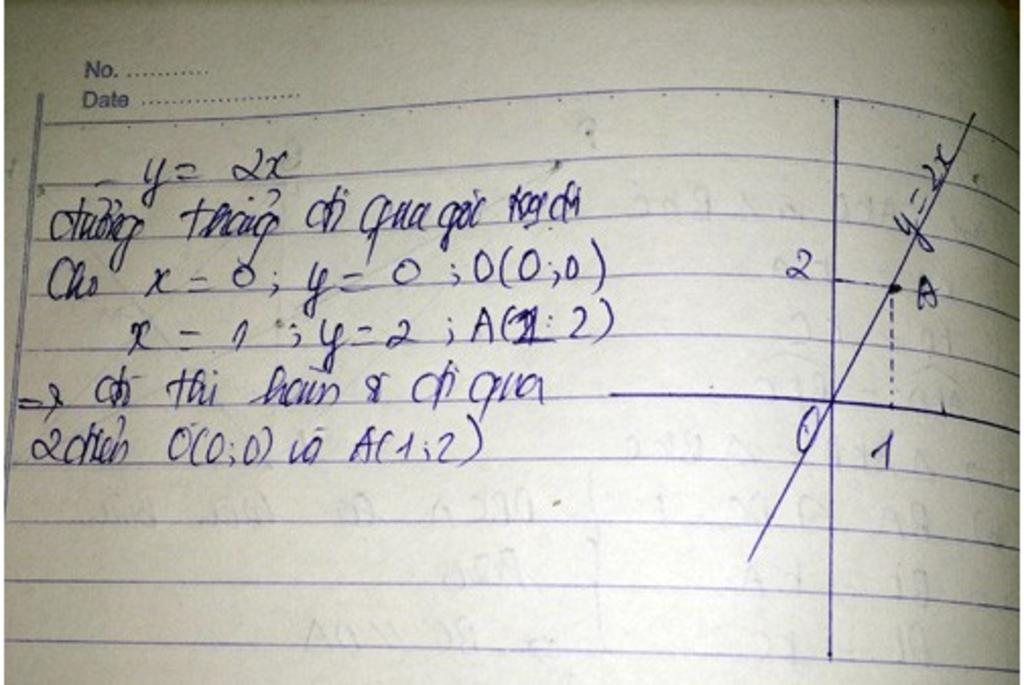 No. ..........
Date ....................
- y = 2x
đường thẳng đi qua gốc tọa độ
Cho x = 0 ; y = 0 ; O(0;0)
x = 1 ; y = 2 ; A(1; 2)
→ đồ thị hàm số đi qua
2 điểm O(0;0) và A(1;2)
y = 2x
2
A
O
1